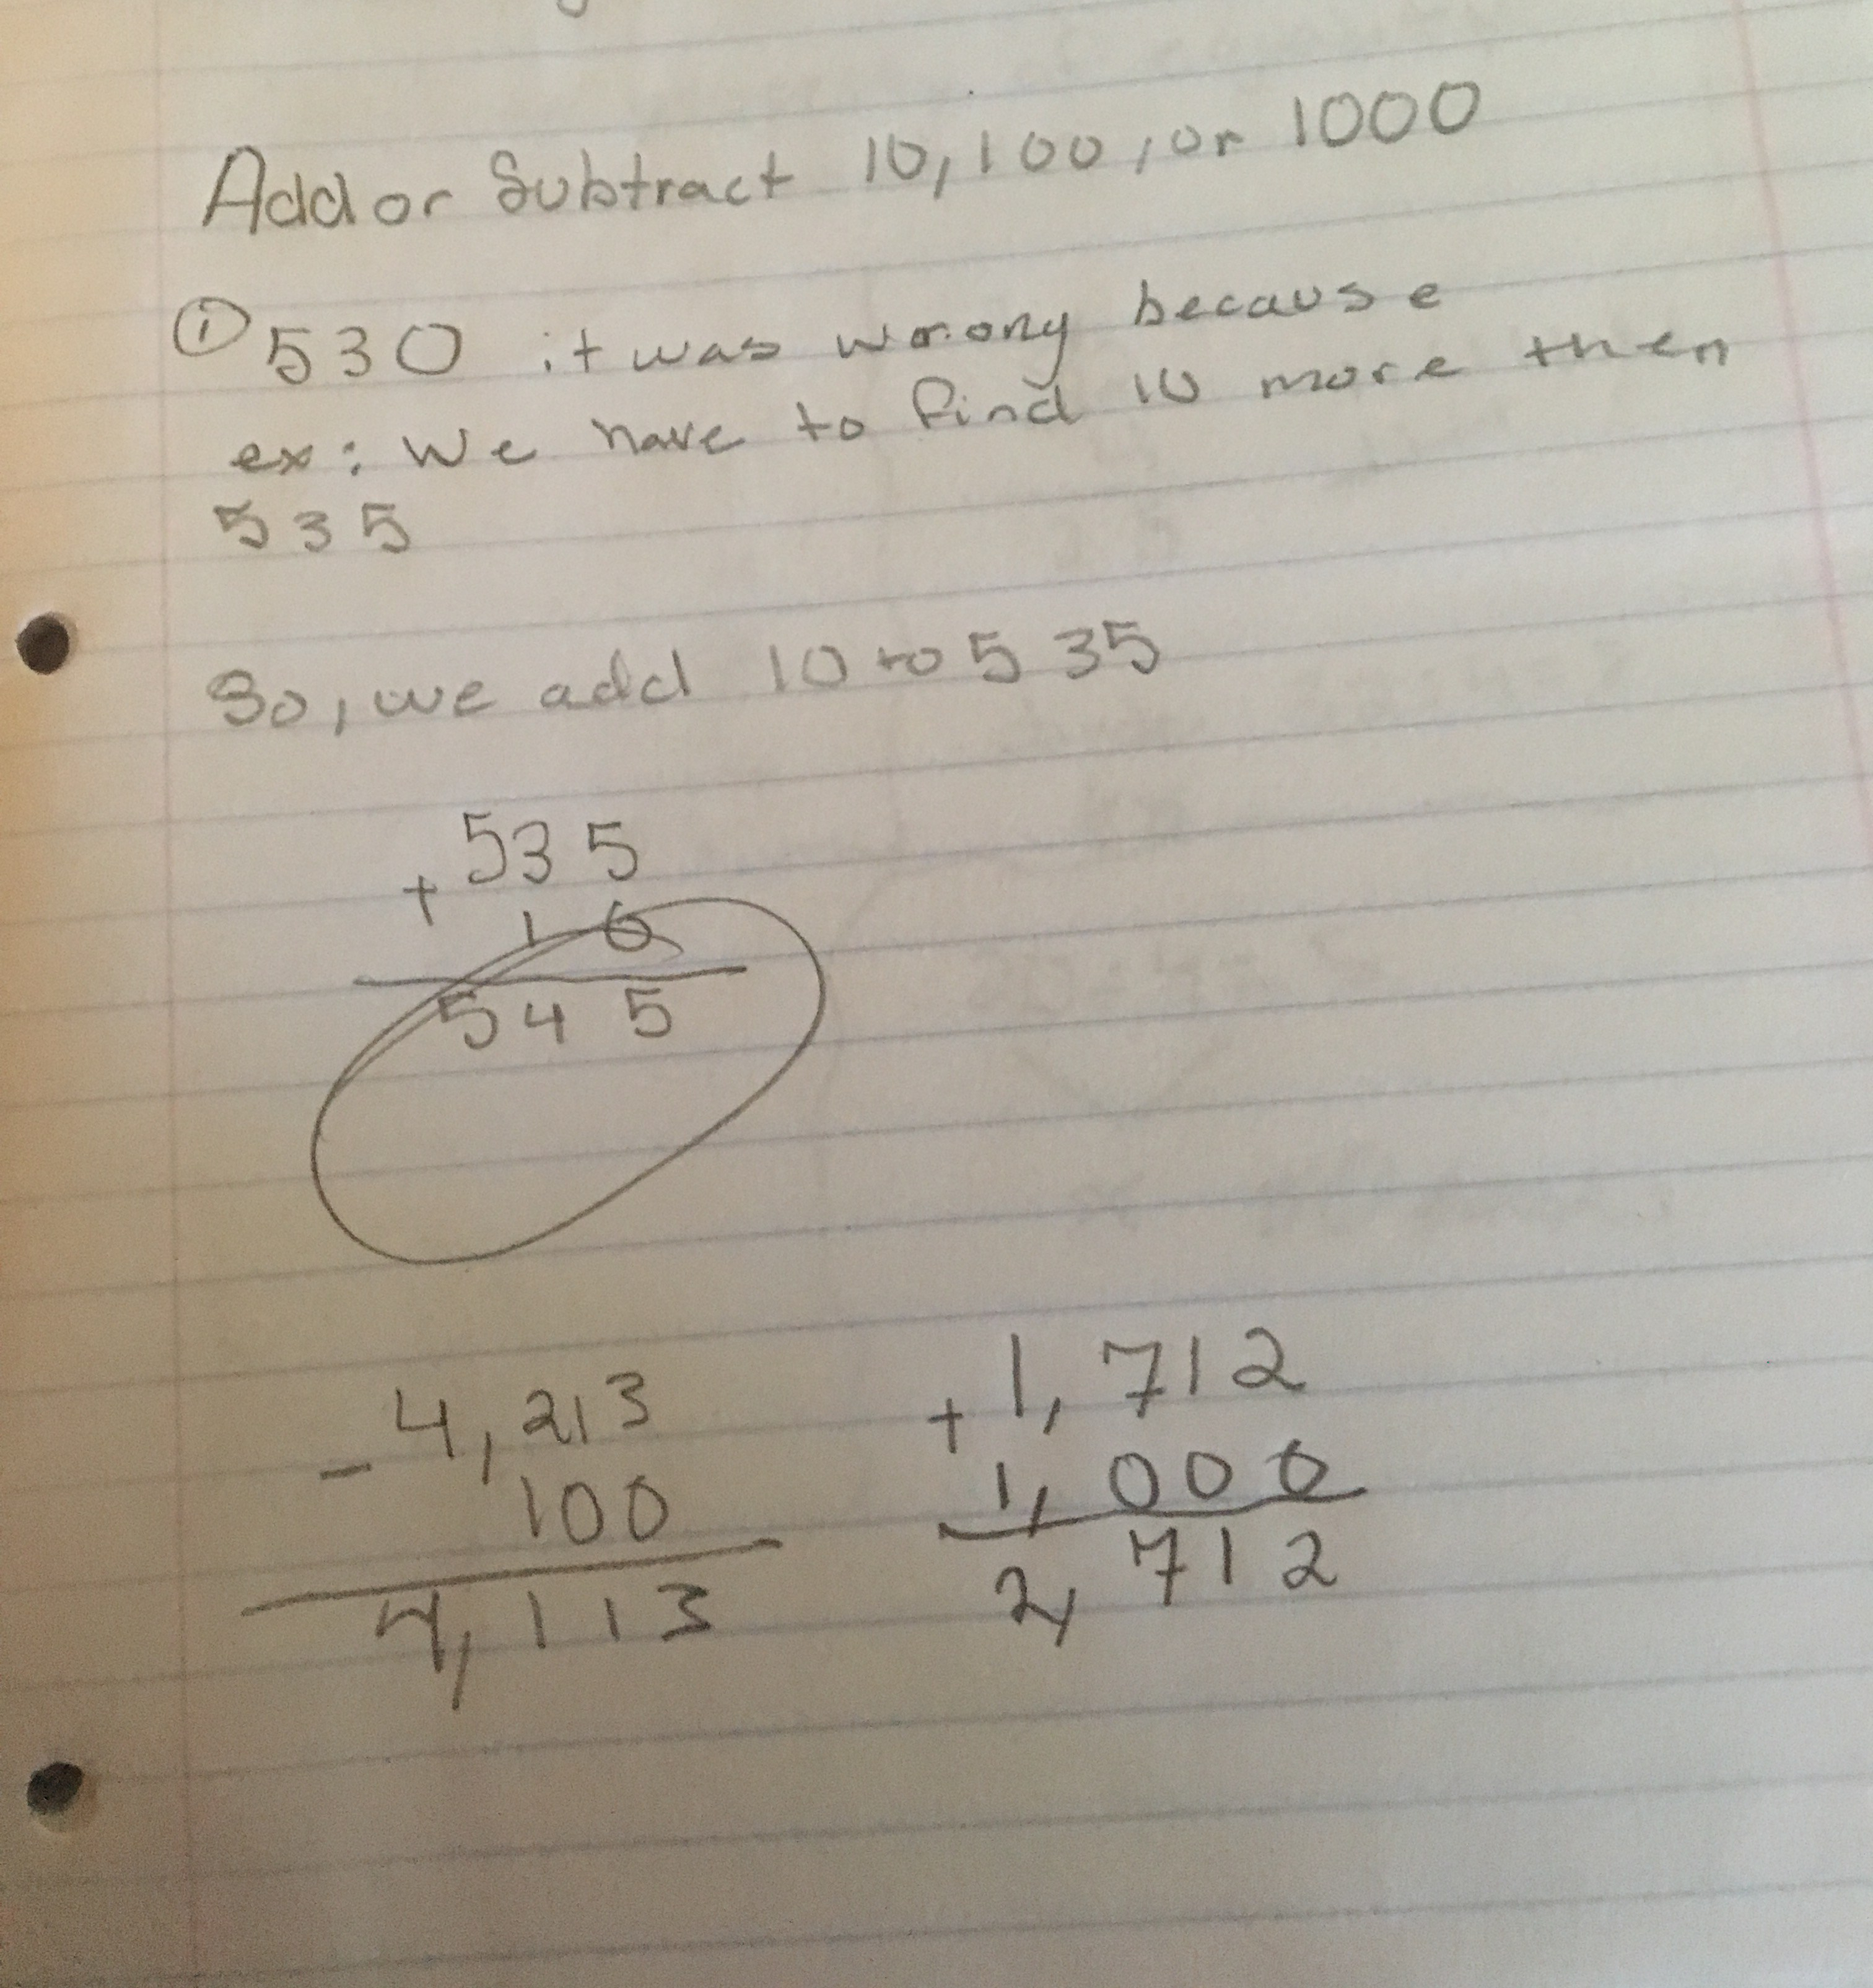 Add or Subtract 10, 100, or 1000
① 530 it was wrong because
ex: We have to find 10 more then
535
So, we add 10 to 535
535
+
10
545
4,213
-
100
4,113
1,712
+
1,000
2,712